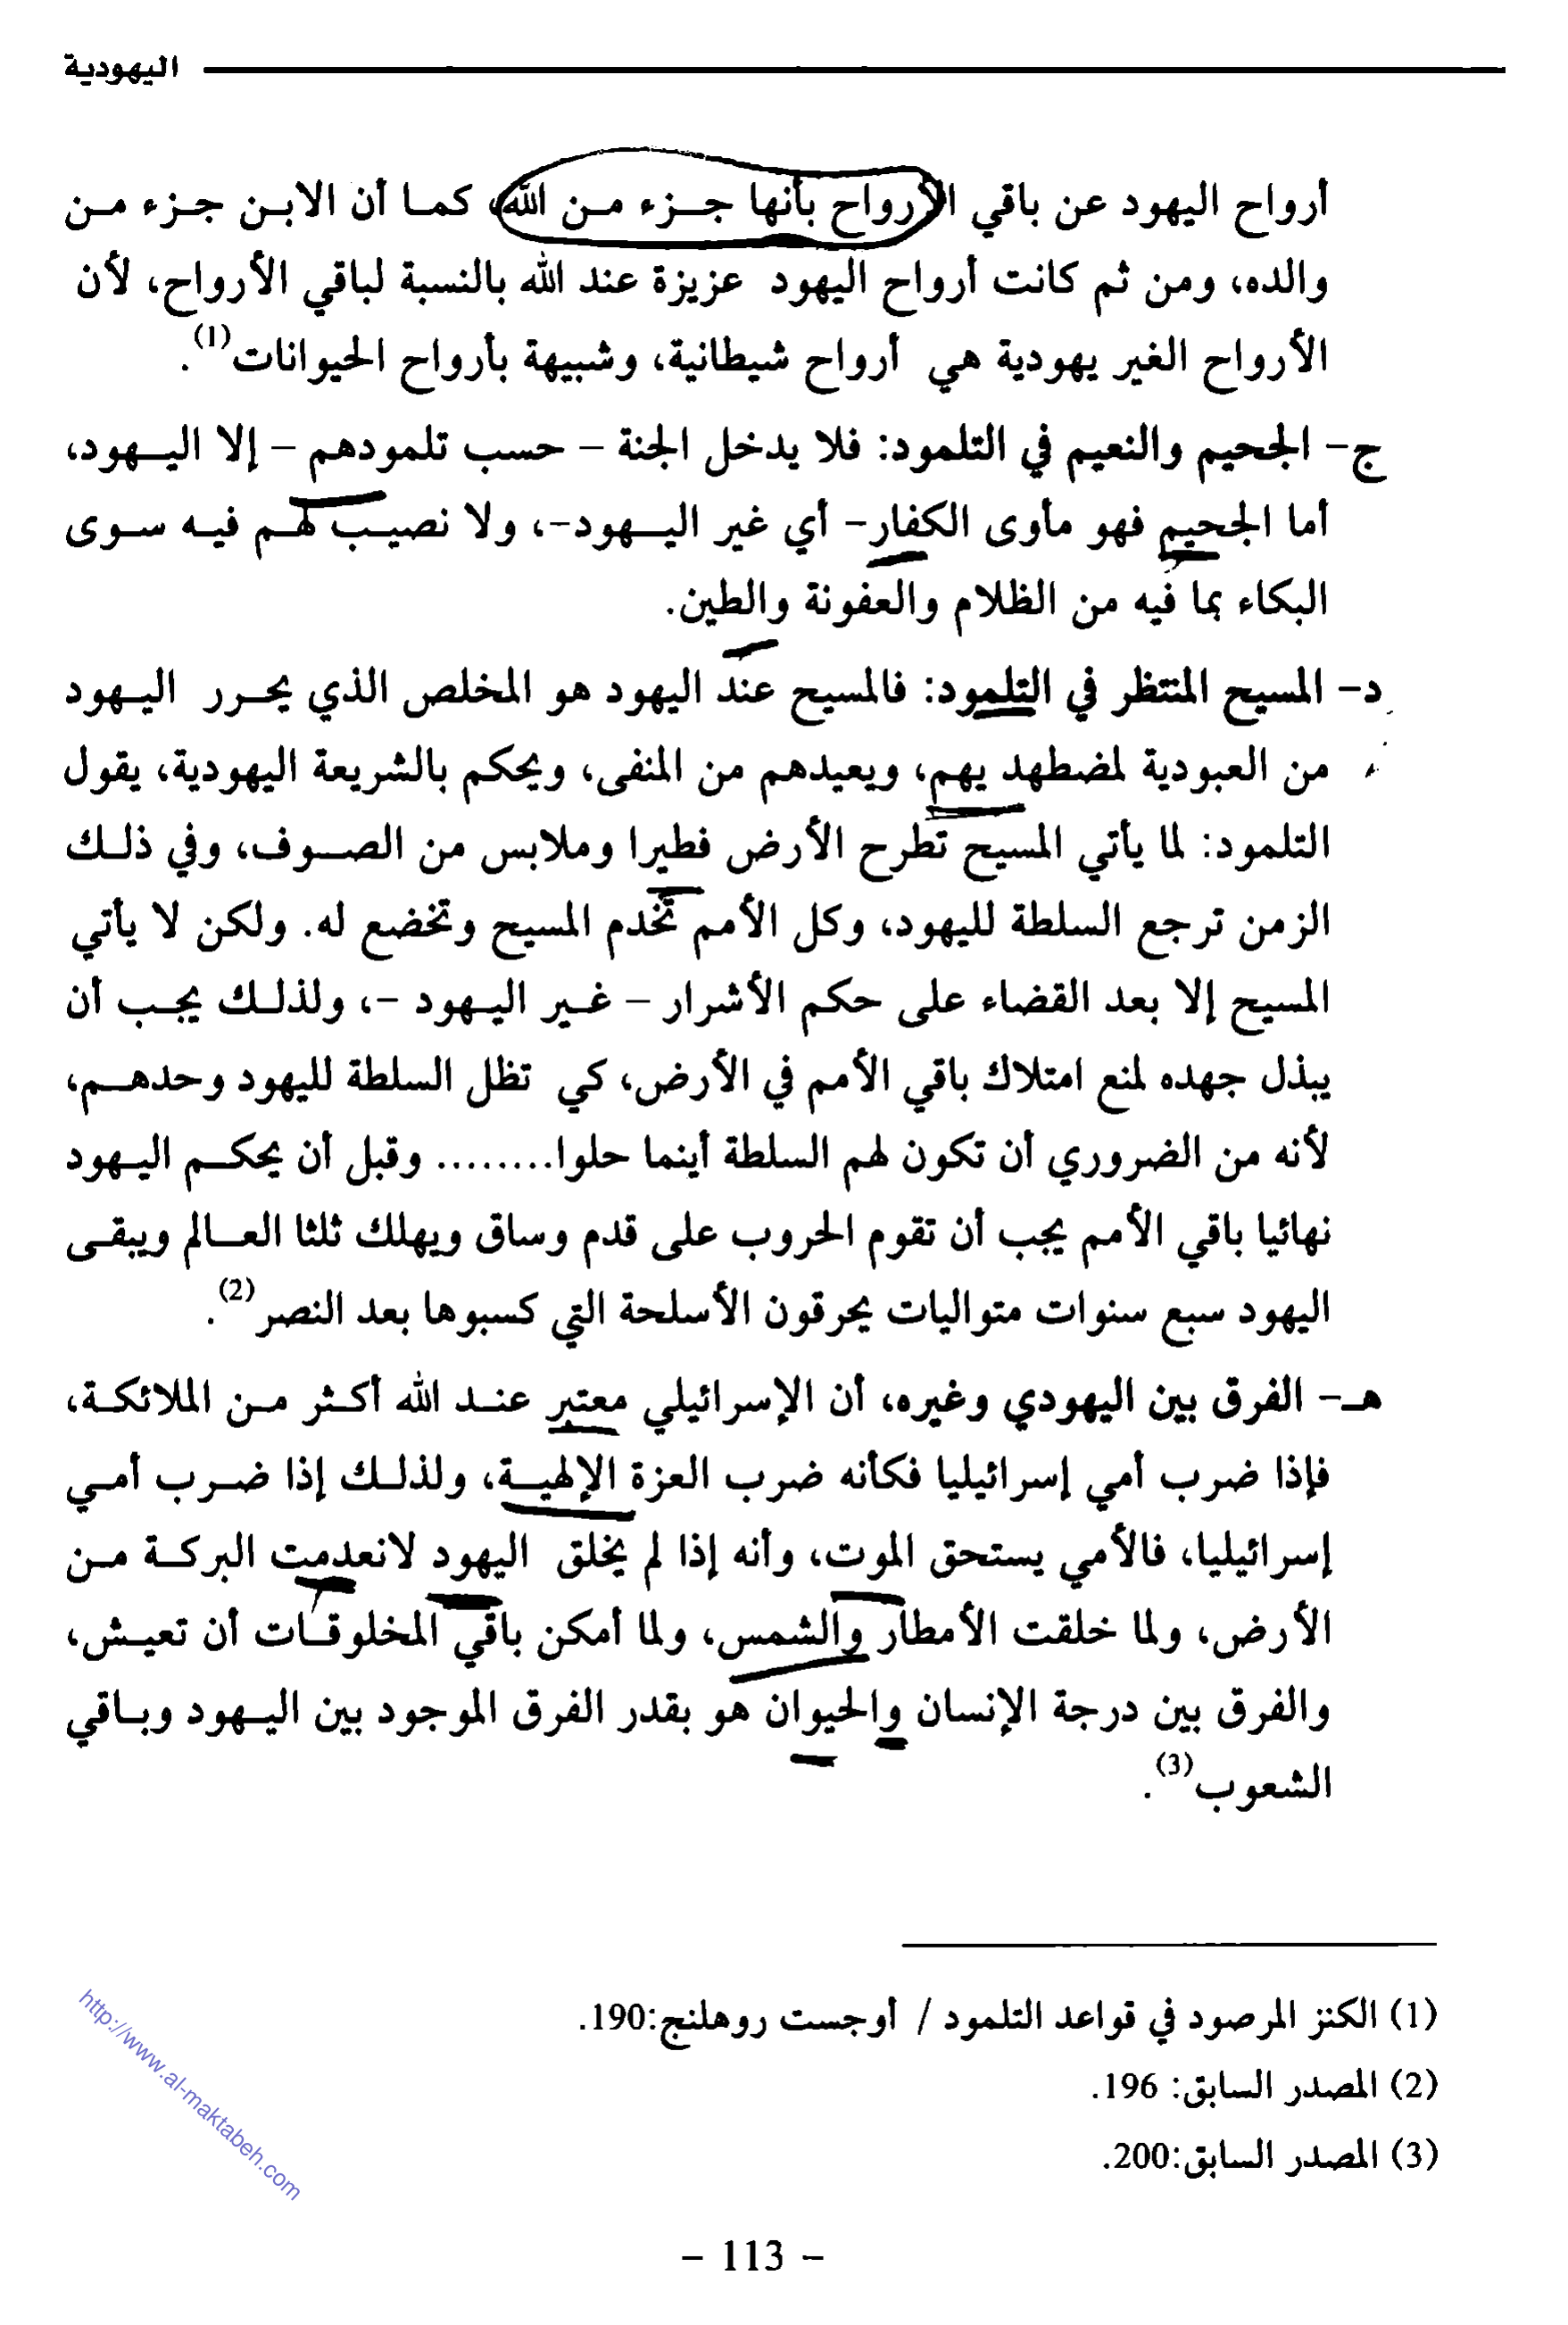 اليهودية
أرواح اليهود عن باقي الأرواح بأنها جـزء مـن الله، كمـا أن الابـن جـزء مـن
والده، ومن ثم كانت أرواح اليهود عزيزة عند الله بالنسبة لباقي الأرواح، لأن
الأرواح الغير يهودية هي أرواح شيطانية، وشبيهة بأرواح الحيوانات(1).
ج- الجحيم والنعيم في التلمود: فلا يدخل الجنة – حسب تلمودهم – إلا اليـهود،
أما الجحيم فهو مأوى الكفار- أي غير اليـهود-، ولا نصيـب لهـم فيـه سـوى
البكاء بما فيه من الظلام والعفونة والطين.
د- المسيح المنتظر في التلمود: فالمسيح عند اليهود هو المخلص الذي يحـرر اليـهود
من العبودية لمضطهد يهم، ويعيدهم من المنفى، ويحكم بالشريعة اليهودية، يقول
التلمود: لما يأتي المسيح تطرح الأرض فطيرا وملابس من الصـوف، وفي ذلـك
الزمن ترجع السلطة لليهود، وكل الأمم تخدم المسيح وتخضع له. ولكن لا يأتي
المسيح إلا بعد القضاء على حكم الأشرار – غـير اليـهود –، ولذلـك يجـب أن
يبذل جهده لمنع امتلاك باقي الأمم في الأرض، كي تظل السلطة لليهود وحدهـم،
لأنه من الضروري أن تكون لهم السلطة أينما حلوا........ وقبل أن يحكـم اليـهود
نهائيا باقي الأمم يجب أن تقوم الحروب على قدم وساق ويهلك ثلثا العـالم ويبقـى
اليهود سبع سنوات متواليات يحرقون الأسلحة التي كسبوها بعد النصر(2).
هـ- الفرق بين اليهودي وغيره، أن الإسرائيلي معتبر عنـد الله أكـثر مـن الملائكـة،
فإذا ضرب أمي إسرائيليا فكأنه ضرب العزة الإلهيـة، ولذلـك إذا ضـرب أمـي
إسرائيليا، فالأمي يستحق الموت، وأنه إذا لم يخلق اليهود لانعدمت البركـة مـن
الأرض، ولما خلقت الأمطار والشمس، ولما أمكن باقي المخلوقـات أن تعيـش،
والفرق بين درجة الإنسان والحيوان هو بقدر الفرق الموجود بين اليـهود وبـاقي
الشعوب(3).
(1) الكنز المرصود في قواعد التلمود / أوجست روهلنج:190.
(2) المصدر السابق: 196.
(3) المصدر السابق:200.
http://www.al-maktabeh.com
– 113 –